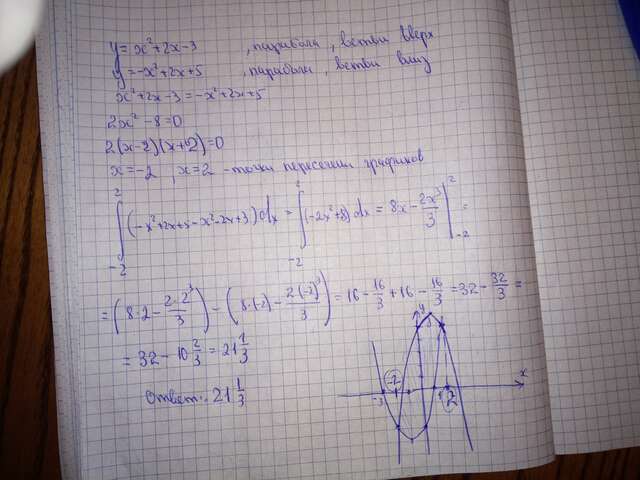 y = x² + 2x - 3 , парабола, ветви вверх
y = -x² + 2x + 5 , парабола, ветви вниз
x² + 2x - 3 = -x² + 2x + 5
2x² - 8 = 0
2(x - 2)(x + 2) = 0
x = -2, x = 2 - точки пересечения графиков
∫₋₂² (-x² + 2x + 5 - x² - 2x + 3) dx = ∫₋₂² (-2x² + 8) dx = 8x - 2x³/3 |₋₂² =
= (8·2 - 2·2³/3) - (8·(-2) - 2(-2)³/3) = 16 - 16/3 + 16 - 16/3 = 32 - 32/3 =
= 32 - 10 2/3 = 21 1/3
Ответ: 21 1/3
y
-3 -2 2 x